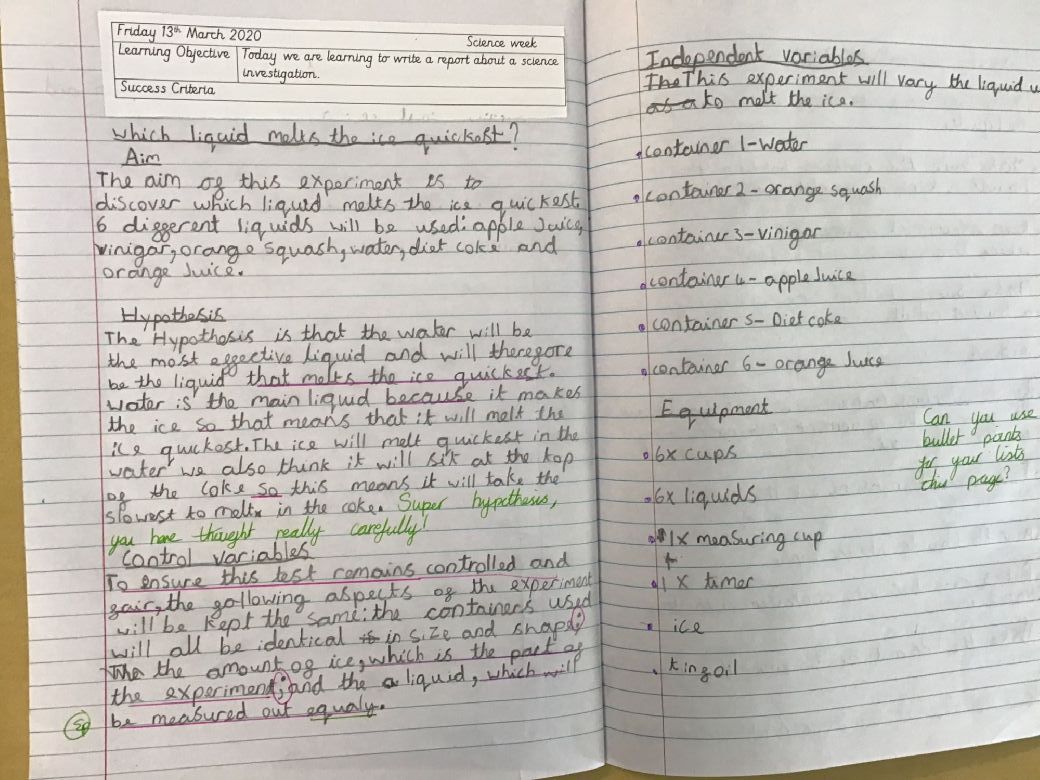 Friday 13th March 2020
Science week
Learning Objective Today we are learning to write a report about a science
investigation.
Success Criteria
which liquid melts the ice quickest?
Aim
The aim of this experiment is to
discover which liquid melts the ice quickest.
6 different liquids will be used: apple Juice,
vinigar, orange squash, water, diet coke and
orange Juice.
Hypothesis
The Hypothesis is that the water will be
the most effective liquid and will therefore
be the liquid that melts the ice quickest.
water is the main liquid because it makes
the ice so that means that it will melt the
ice quickest. The ice will melt quickest in the
water we also think it will sit at the top
of the coke so this means it will take the
slowest to melt in the coke. Super hypothesis,
you have thought really carefully!
Control variables
To ensure this test remains controlled and
fair, the following aspects of the experiment
will be kept the same: the containers used
will all be identical in size and shape;
the the amount of ice, which is the part of
the experiment; and the liquid, which will
be measured out equaly.
Sp
Independent variables
The This experiment will vary the liquid
as a to melt the ice.
container 1 - Water
container 2 - orange squash
container 3 - vinigar
container 4 - apple Juice
container 5 - Diet coke
container 6 - orange Juice
Equipment
6x cups
6x liquids
1x measuring cup
1x timer
ice
tin foil
Can you use
bullet points
for your lists
this page?